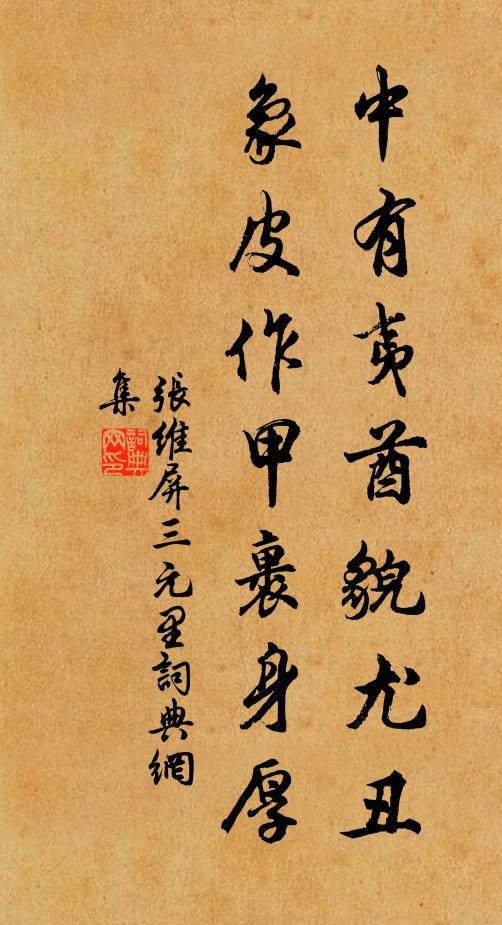 中有夷酋貌尤丑
象皮作甲裹身厚
張維屏三元里詞典網
集
詞典
网印